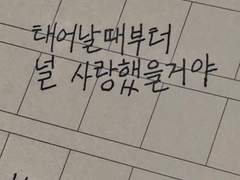 태어날때부터
널 사랑했을거야